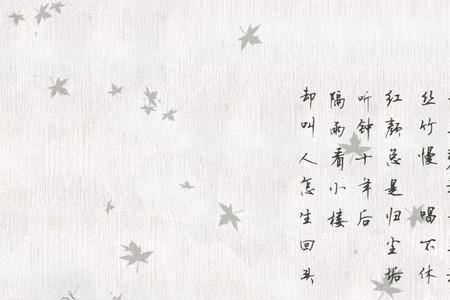 丝竹慢 唱不休
红颜总是归尘垢
听钟十年后
隔雨看小楼
却叫人怎生回头